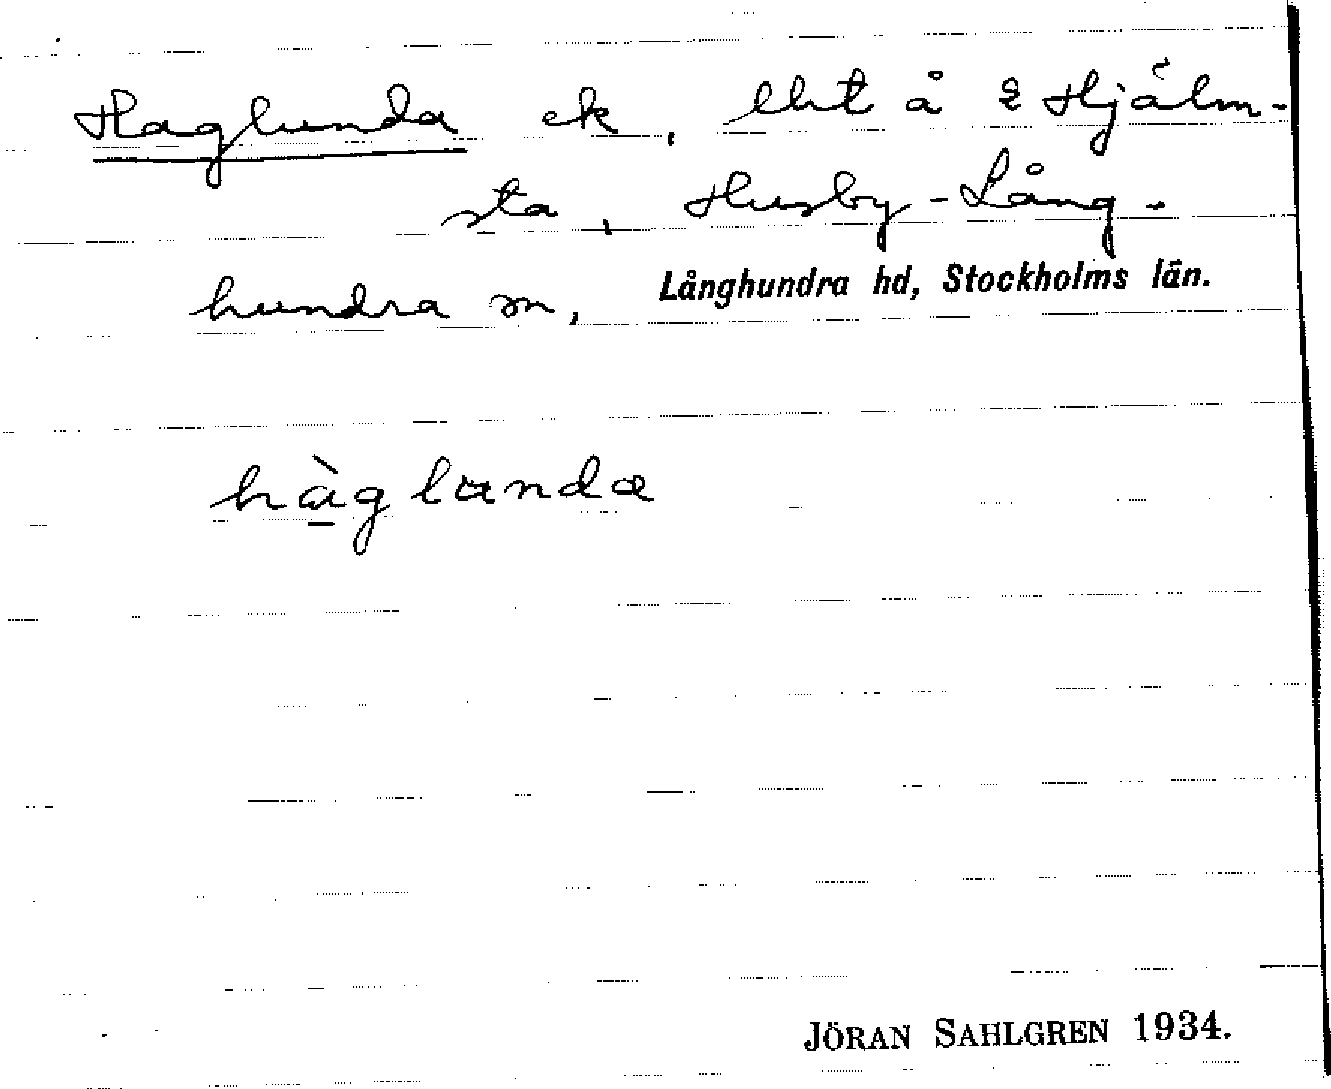 Haglunda ek, lht å 2 Hjälm-
sta, Husby-Lång-
hundra sn, Långhundra hd, Stockholms län.
hàglunda
JÖRAN SAHLGREN 1934.